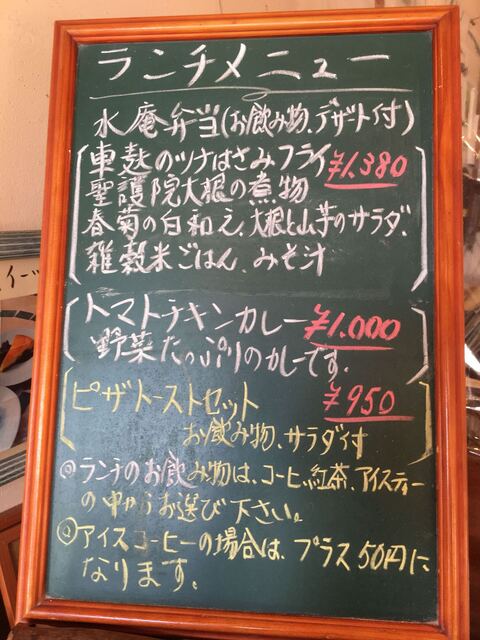 ランチメニュー
水庵弁当(お飲み物、デザート付)
車麩のツナはさみフライ ¥1,380
聖護院大根の煮物
春菊の白和え、大根と山芋のサラダ、
雑穀米ごはん、みそ汁
トマトチキンカレー ¥1,000
野菜たっぷりのカレーです。
ピザトーストセット ¥950
お飲み物、サラダ付
◎ランチのお飲み物は、コーヒー、紅茶、アイスティー
の中からお選び下さい。
◎アイスコーヒーの場合は、プラス50円に
なります。